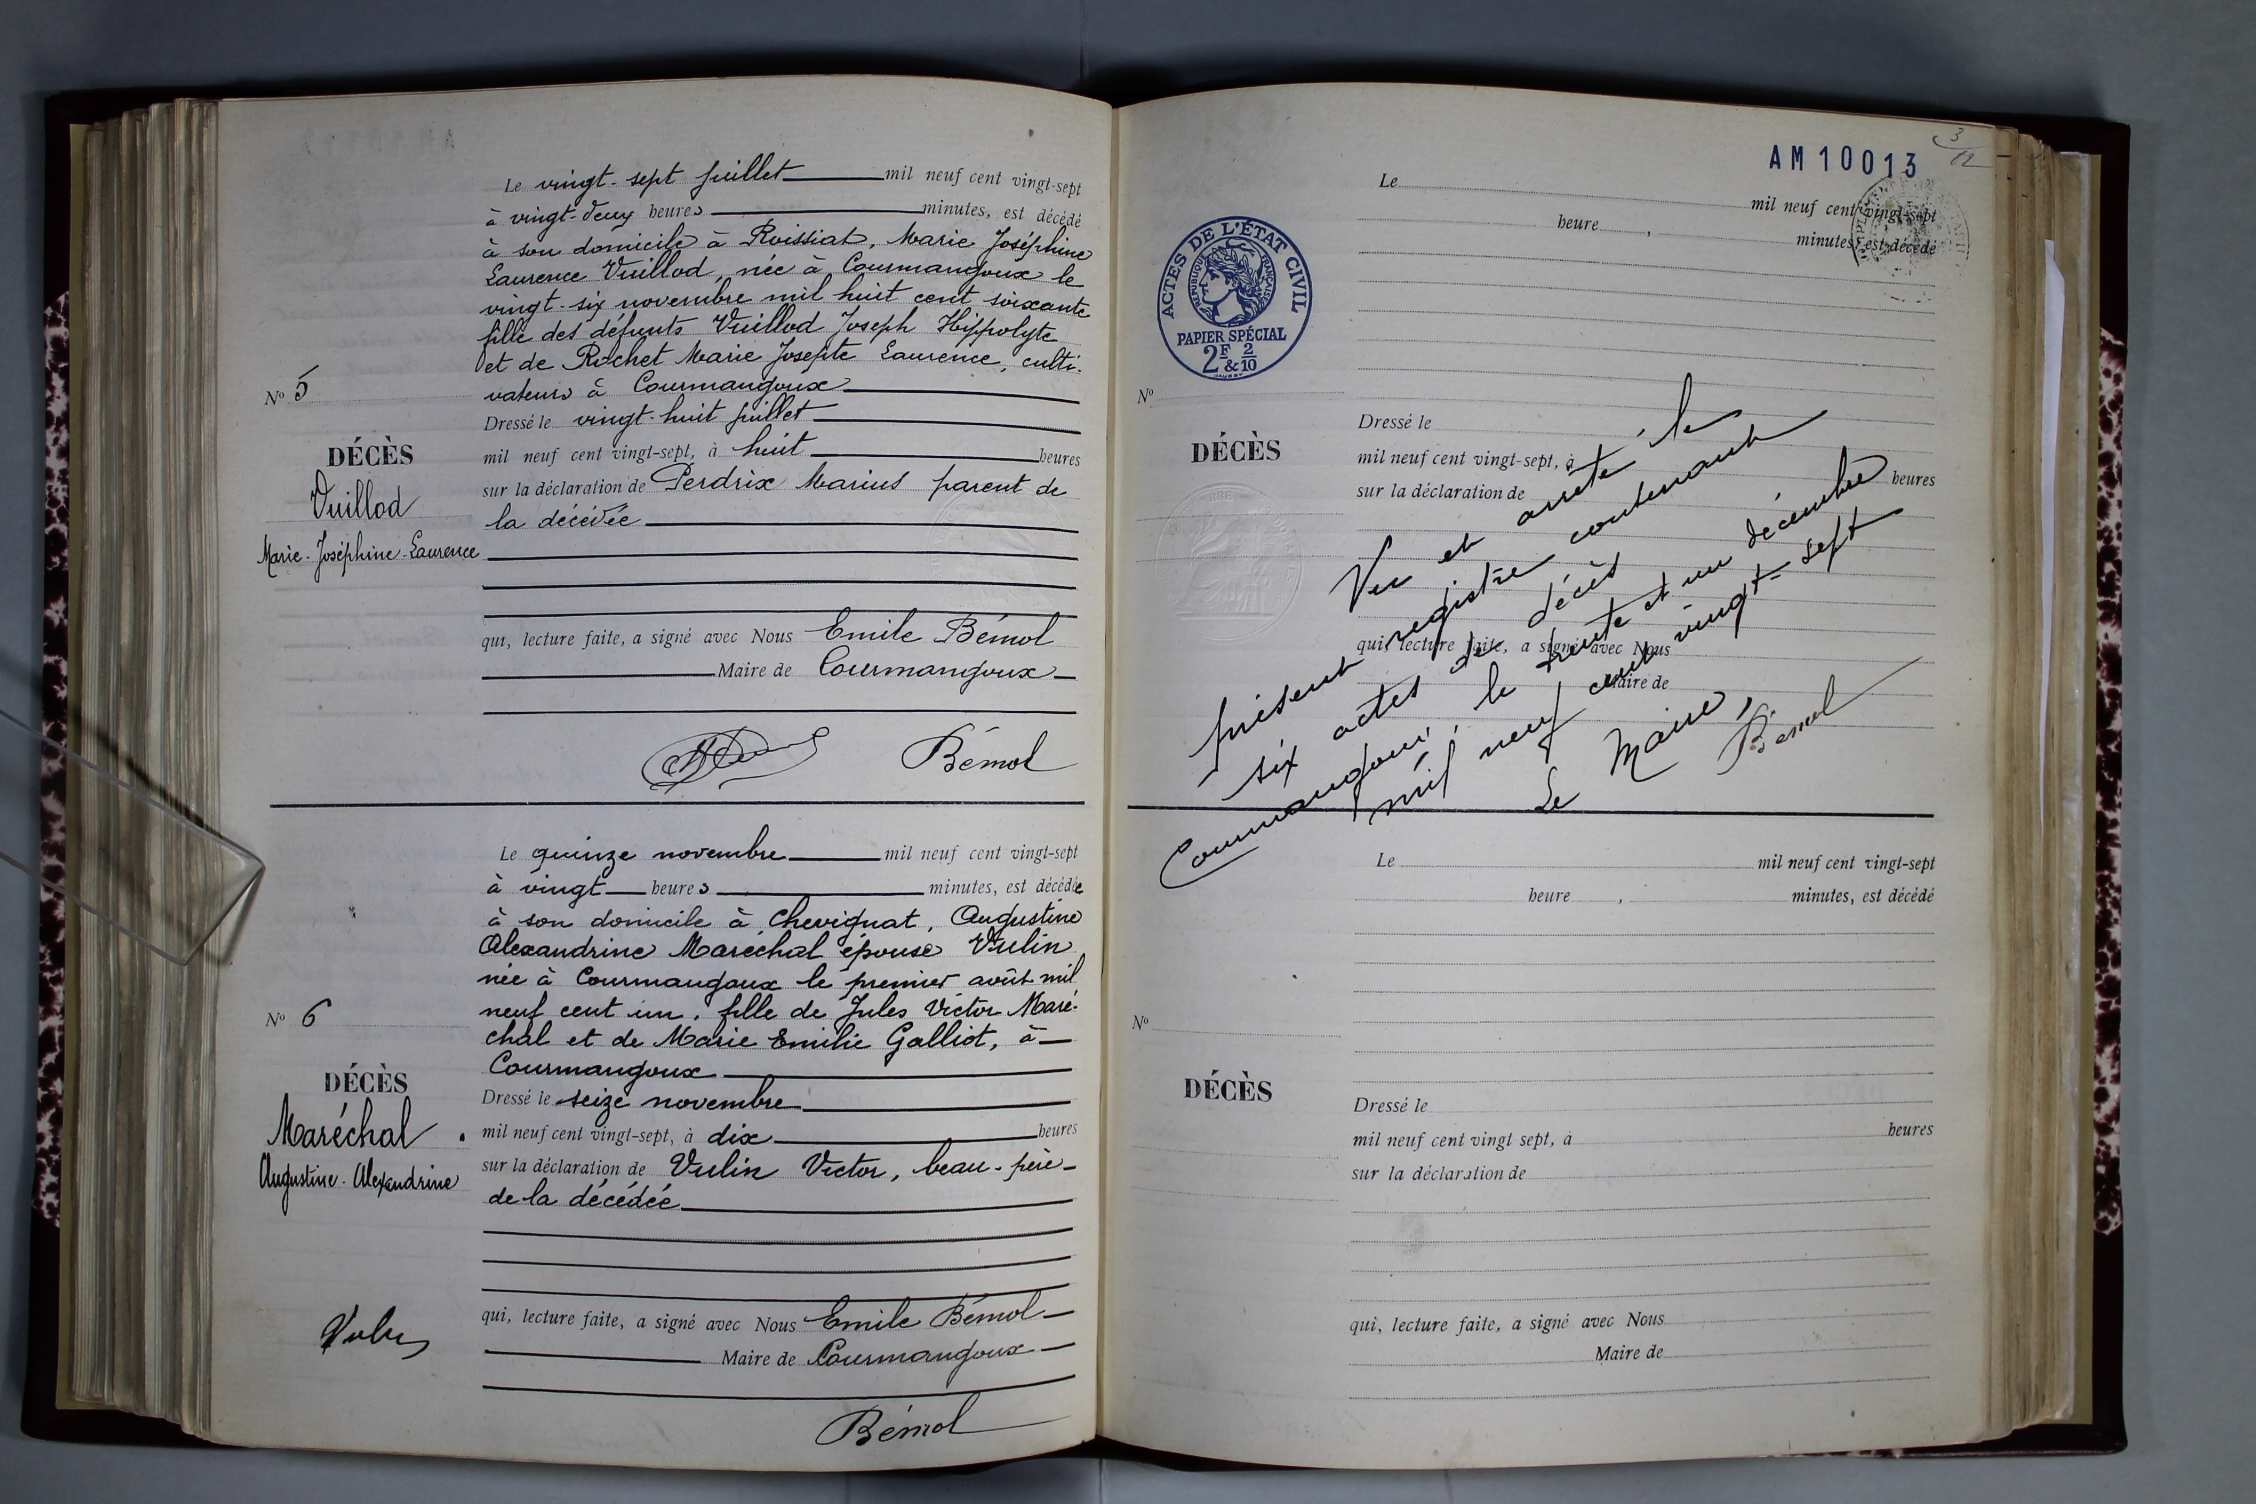 Le vingt-sept juillet mil neuf cent vingt-sept
à vingt-deux heures minutes, est décédé
à son domicile à Roissiat, Marie Joséphine
Laurence Vuillod, née à Courmangoux le
vingt-six novembre mil huit cent soixante
fille des défunts Vuillod Joseph Hippolyte
et de Rochet Marie Josepte Laurence, culti-
vateurs à Courmangoux
Nº 5
Dressé le vingt-huit juillet
DÉCÈS
mil neuf cent vingt-sept, à huit heures
Vuillod
sur la déclaration de Perdrix Marius parent de
la décédée
Marie-Joséphine-Laurence
qui, lecture faite, a signé avec Nous Emile Bémol
Maire de Courmangoux
Bémol
Le quinze novembre mil neuf cent vingt-sept
à vingt heures minutes, est décédée
à son domicile à Chevignat, Augustine
Alexandrine Maréchal épouse Vulin
née à Courmangoux le premier août mil
neuf cent un, fille de Jules Victor Maré-
chal et de Marie Emilie Galliot, à
Courmangoux
Nº 6
DÉCÈS
Dressé le seize novembre
Maréchal
mil neuf cent vingt-sept, à dix heures
Augustine-Alexandrine
sur la déclaration de Vulin Victor, beau-père
de la décédée
qui, lecture faite, a signé avec Nous Emile Bémol
Vulin
Maire de Courmangoux
Bémol
3
12
AM 10013
Le mil neuf cent vingt-sept
heure, minutes, est décédé
ACTES DE L'ÉTAT CIVIL
RÉPUBLIQUE FRANÇAISE
PAPIER SPÉCIAL
2F & 2/10
Nº
Dressé le
DÉCÈS
mil neuf cent vingt-sept, à heures
sur la déclaration de
qui, lecture faite, a signé avec Nous
Maire de
Vu et arrêté le
présent registre contenant
six actes de décès
Courmangoux, le trente et un décembre
mil neuf cent vingt-sept
Le Maire,
Bémol
Le mil neuf cent vingt-sept
heure, minutes, est décédé
Nº
DÉCÈS
Dressé le
mil neuf cent vingt sept, à heures
sur la déclaration de
qui, lecture faite, a signé avec Nous
Maire de